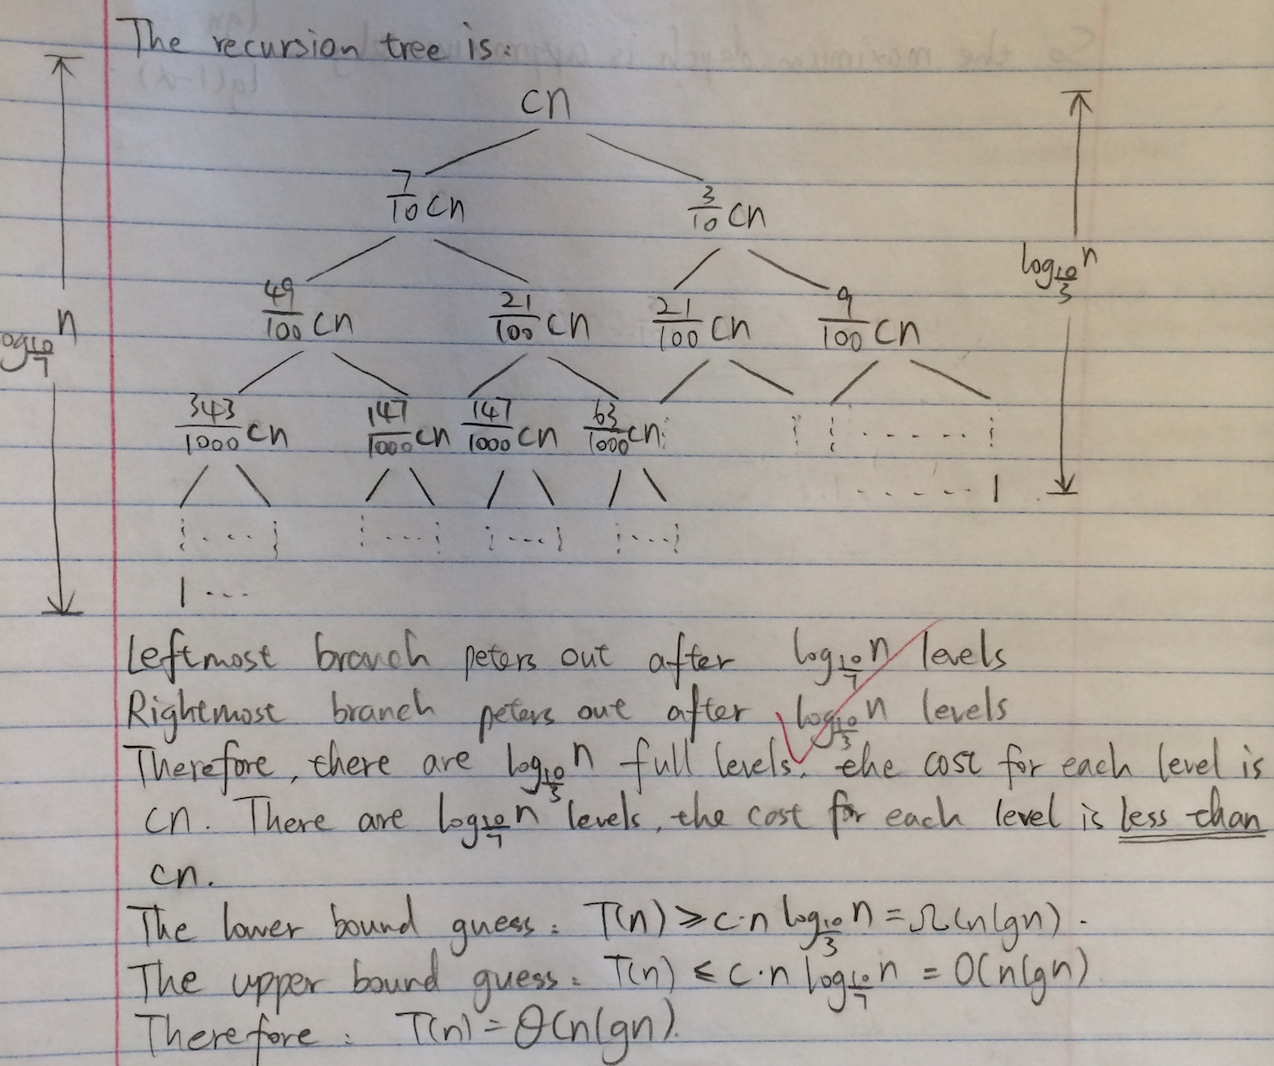 The recursion tree is:
cn
7/10 cn 3/10 cn
log_{10/7} n
log_{10/3} n
49/100 cn 21/100 cn 21/100 cn 9/100 cn
343/1000 cn 147/1000 cn 147/1000 cn 63/1000 cn
1
1 ...
Leftmost branch peters out after log_{10/7} n levels
Rightmost branch peters out after log_{10/3} n levels
Therefore, there are log_{10/3} n full levels, the cost for each level is
cn. There are log_{10/7} n levels, the cost for each level is less than
cn.
The lower bound guess: T(n) ≥ c·n log_{10/3} n = Ω(n lgn).
The upper bound guess: T(n) ≤ c·n log_{10/7} n = O(n lgn)
Therefore: T(n) = Θ(n lgn).